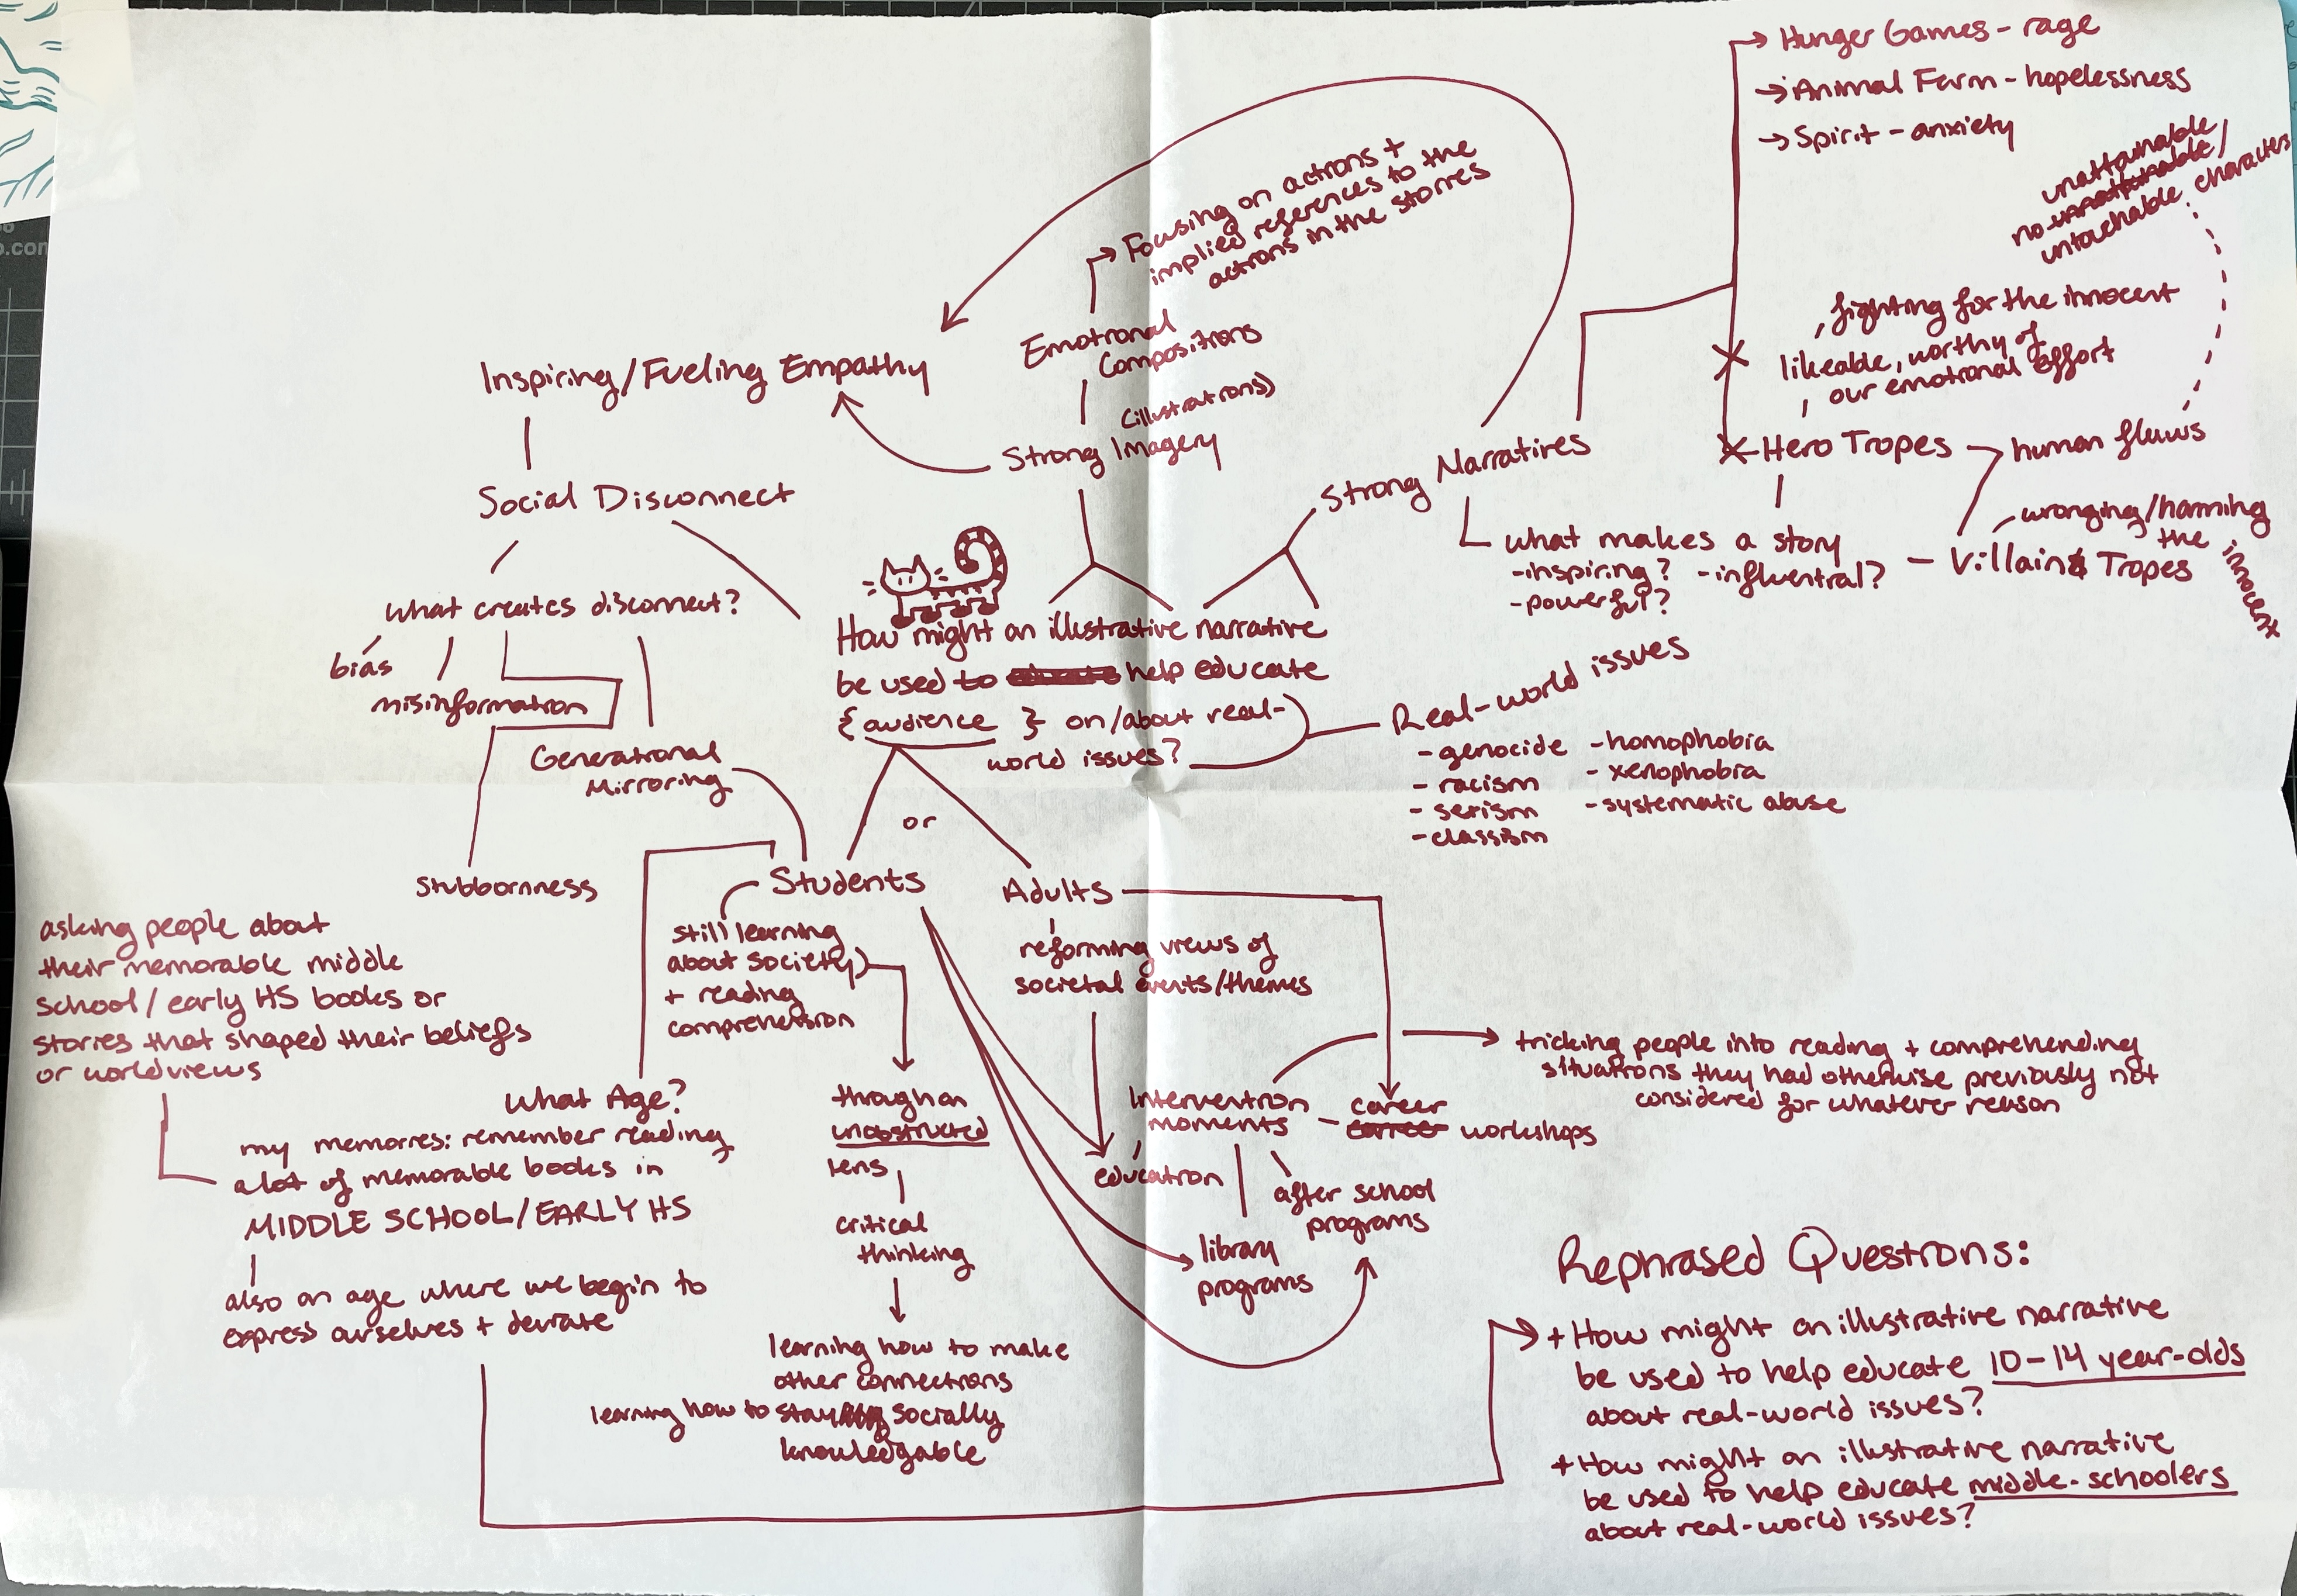 o.com
→ Hunger Games - rage
→ Animal Farm - hopelessness
→ Spirit - anxiety
unattainable
no unattainable/
untouchable characters
Focusing on actions +
implied references to the
actions in the stories
Emotional
Compositions
(illustrations)
Strong Imagery
Inspiring/Fueling Empathy
Social Disconnect
what creates disconnect?
bias
misinformation
Generational
Mirroring
Stubbornness
Strong Narratives
what makes a story
- inspiring? - influential?
- powerful?
fighting for the innocent
likeable, worthy of
our emotional effort
Hero Tropes
human flaws
wronging/harming
the
innocent
Villain Tropes
How might an illustrative narrative
be used to help educate
{audience } on/about real-
world issues?
Real-world issues
- genocide - homophobia
- racism - xenophobia
- sexism - systematic abuse
- classism
or
Students
Adults
still learning
about society)
+ reading
comprehension
through an
unobstructed
lens
critical
thinking
learning how to make
other connections
learning how to stay socially
knowledgable
reforming views of
societal events/themes
Intervention
moments
career
career workshops
education
after school
programs
library
programs
→ tricking people into reading + comprehending
situations they had otherwise previously not
considered for whatever reason
asking people about
their memorable middle
school/early HS books or
stories that shaped their beliefs
or worldviews
What Age?
my memories: remember reading
a lot of memorable books in
MIDDLE SCHOOL/EARLY HS
also an age where we begin to
express ourselves + deviate
Rephrased Questions:
+ How might an illustrative narrative
be used to help educate 10-14 year-olds
about real-world issues?
+ How might an illustrative narrative
be used to help educate middle-schoolers
about real-world issues?